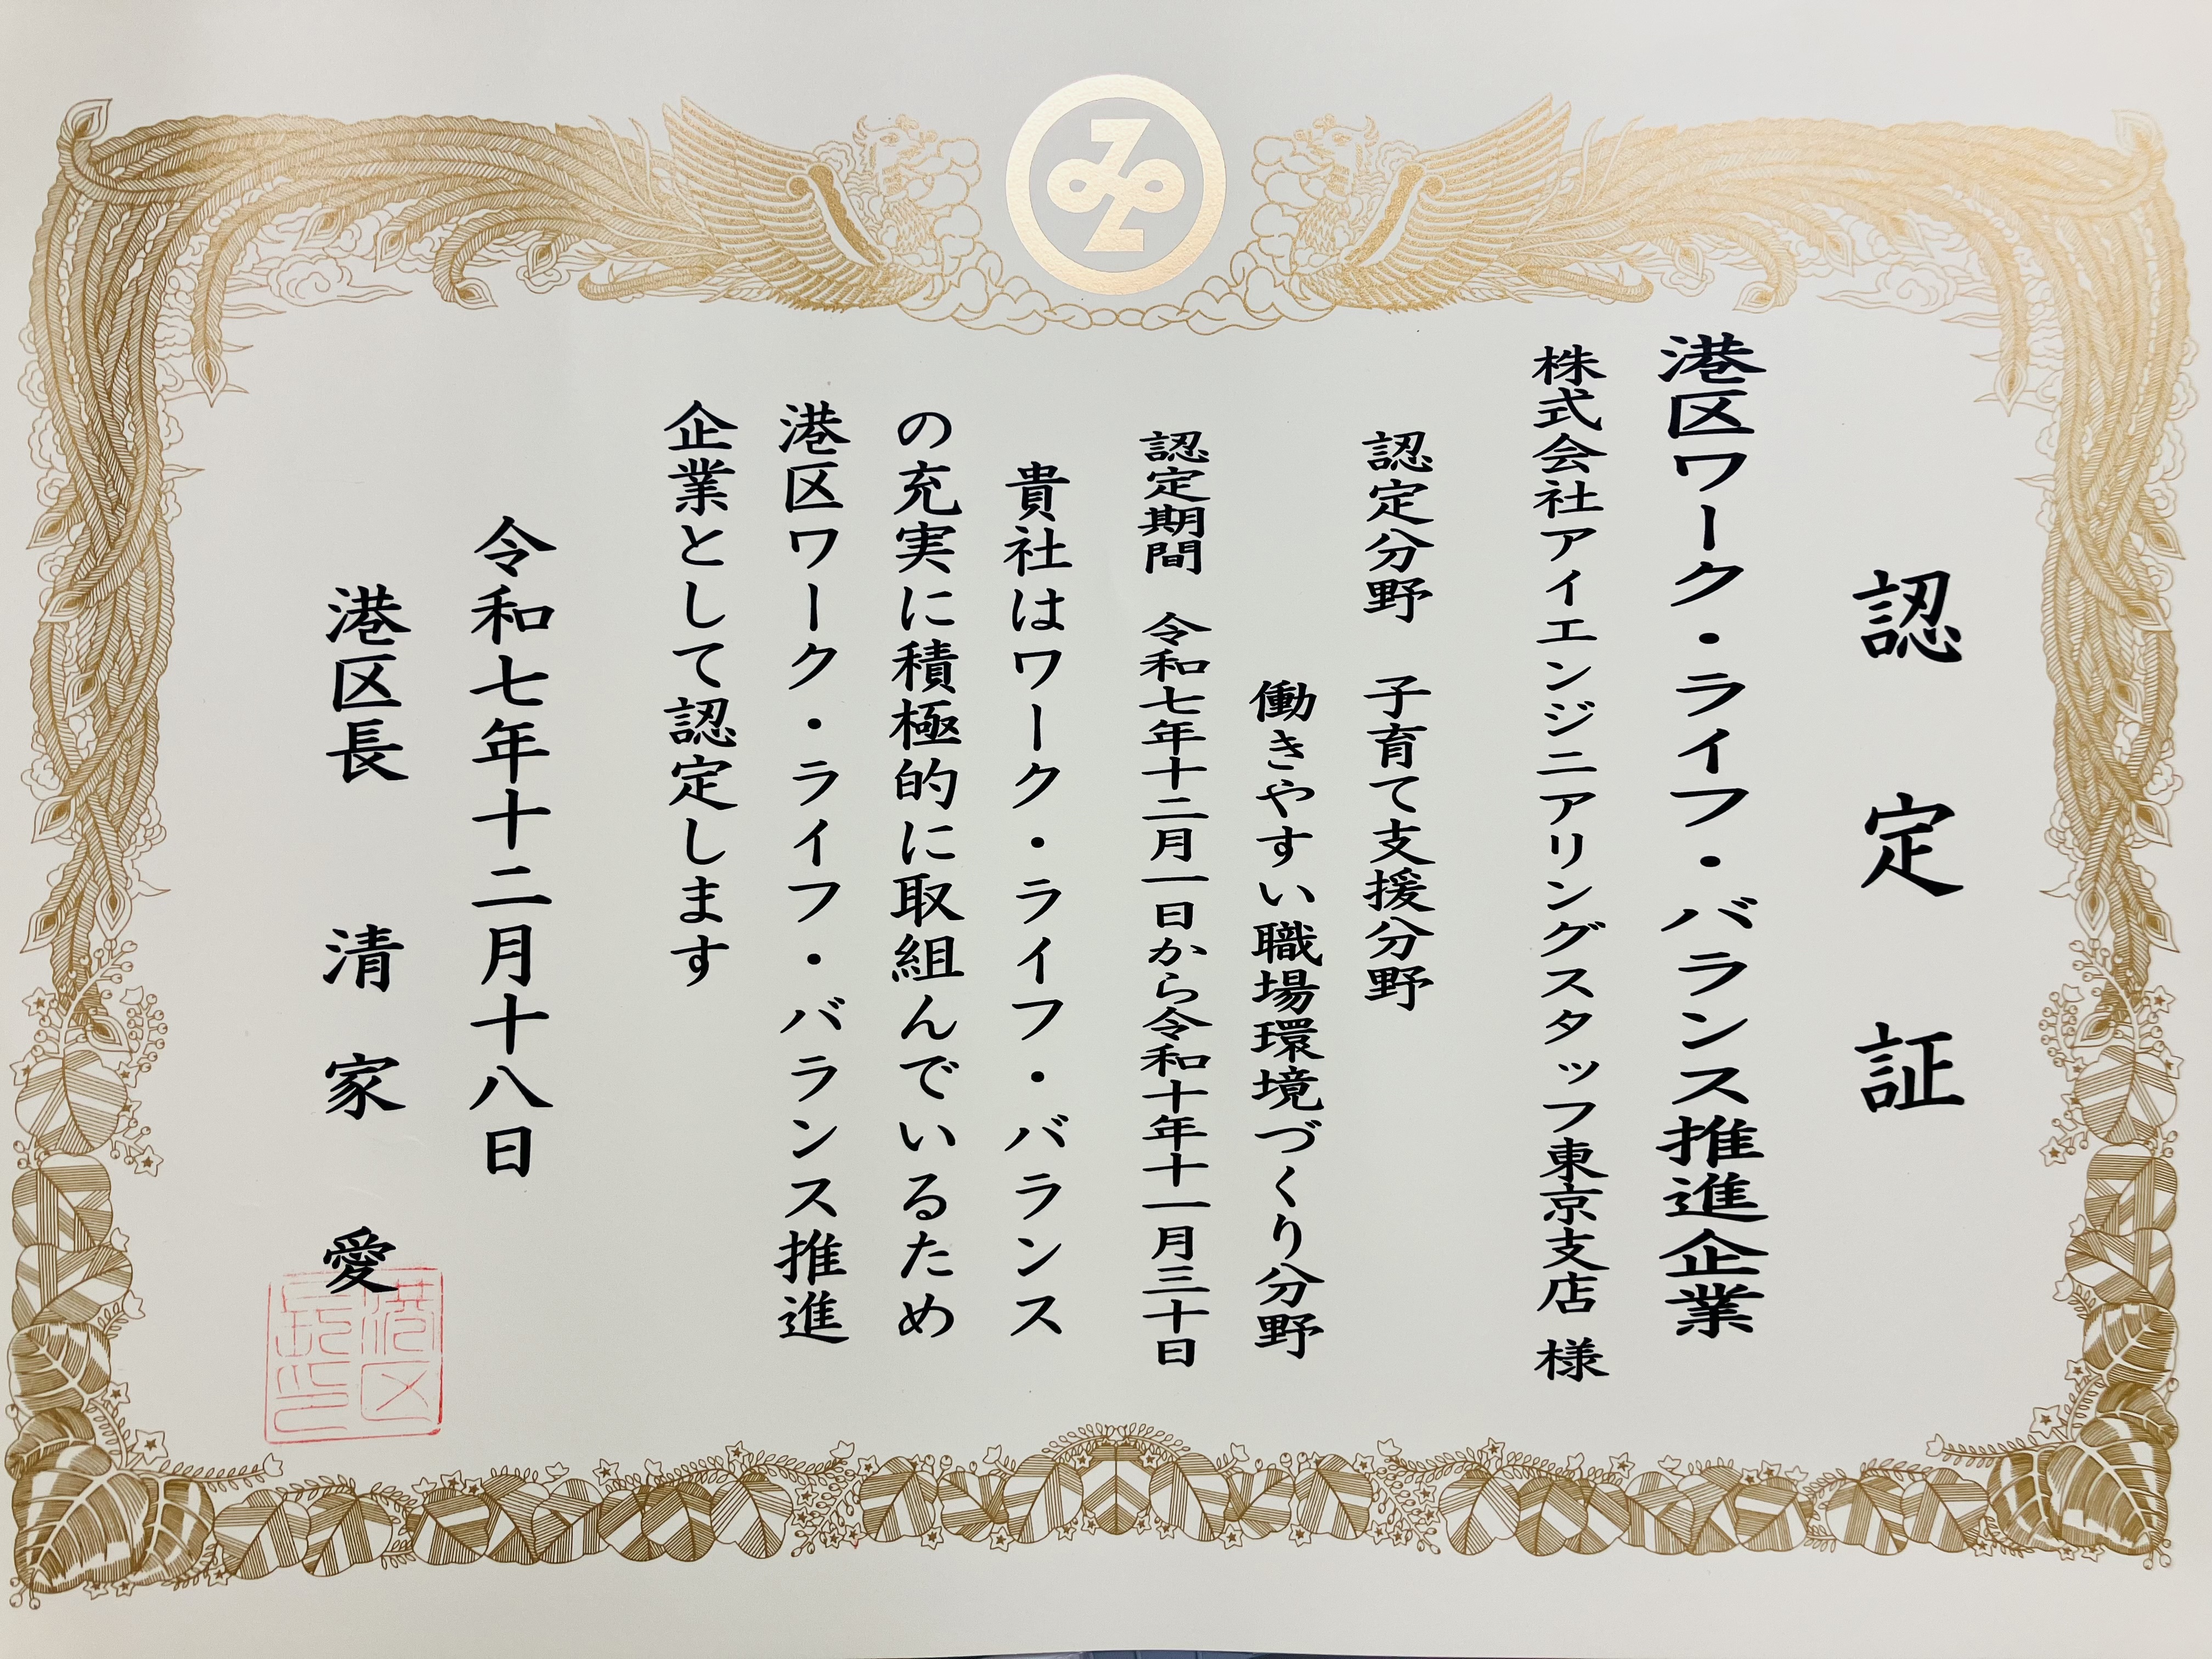 認定証
港区ワーク・ライフ・バランス推進企業
株式会社アイエンジニアリングスタッフ東京支店 様
認定分野 子育て支援分野
働きやすい職場環境づくり分野
認定期間 令和七年十二月一日から令和十年十一月三十日
貴社はワーク・ライフ・バランス
の充実に積極的に取組んでいるため
港区ワーク・ライフ・バランス推進
企業として認定します
令和七年十二月十八日
港区長 清家 愛
港区
長印